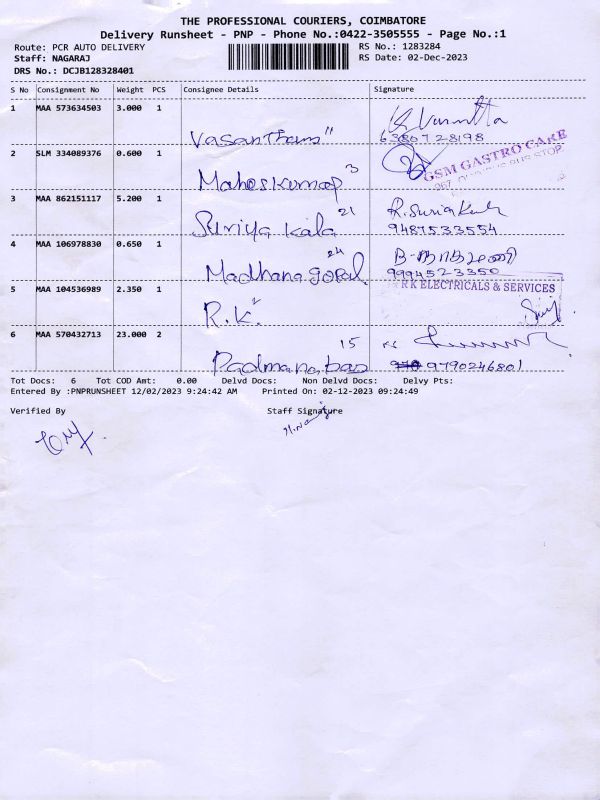 THE PROFESSIONAL COURIERS, COIMBATORE
Delivery Runsheet - PNP - Phone No.:0422-3505555 - Page No.:1
Route: PCR AUTO DELIVERY RS No.: 1283284
Staff: NAGARAJ RS Date: 02-Dec-2023
DRS No.: DCJB128328401
S No Consignment No Weight PCS Consignee Details Signature
1 MAA 573634503 3.000 1
Vasantham 11 6380728198
2 SLM 334089376 0.600 1
GSM GASTRO CARE
Maheskumar 3
3 MAA 862151117 5.200 1
Suriya kala 21 R. Suriakala
9487533554
4 MAA 106978830 0.650 1
Madhana gopal 24 9994523350
5 MAA 104536989 2.350 1 R K ELECTRICALS & SERVICES
R.K. 2
6 MAA 570432713 23.000 2
15
Padmanabas 9790246801
Tot Docs: 6 Tot COD Amt: 0.00 Delvd Docs: Non Delvd Docs: Delvy Pts:
Entered By :PNPRUNSHEET 12/02/2023 9:24:42 AM Printed On: 02-12-2023 09:24:49
Verified By Staff Signature